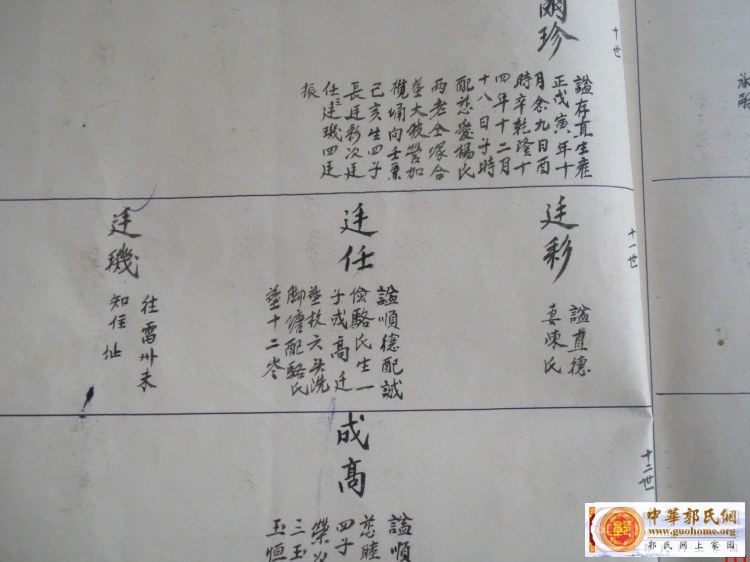 十世
爾珍
諡存直生雍
正戊寅年十
月念九日酉
時卒乾隆十
四年十二月
十八日子時
配慈愛楊氏
兩老仝塚合
塟大枝營加
欖埇向壬兼
己亥生四子
長廷彩次廷
任三廷璣四廷
振
十一世
廷彩
諡直德
妻陳氏
廷任
諡順德配誠
儉駱氏生一
子成高廷
塟枝六头洗
脚塘配駱氏
塟十二岺
廷璣
往雷州未
知住址
十二世
成高
諡順
慈睦
四子
榮
三玉
玉恒
中華郭氏網
www.guohome.org
郭氏网上家园